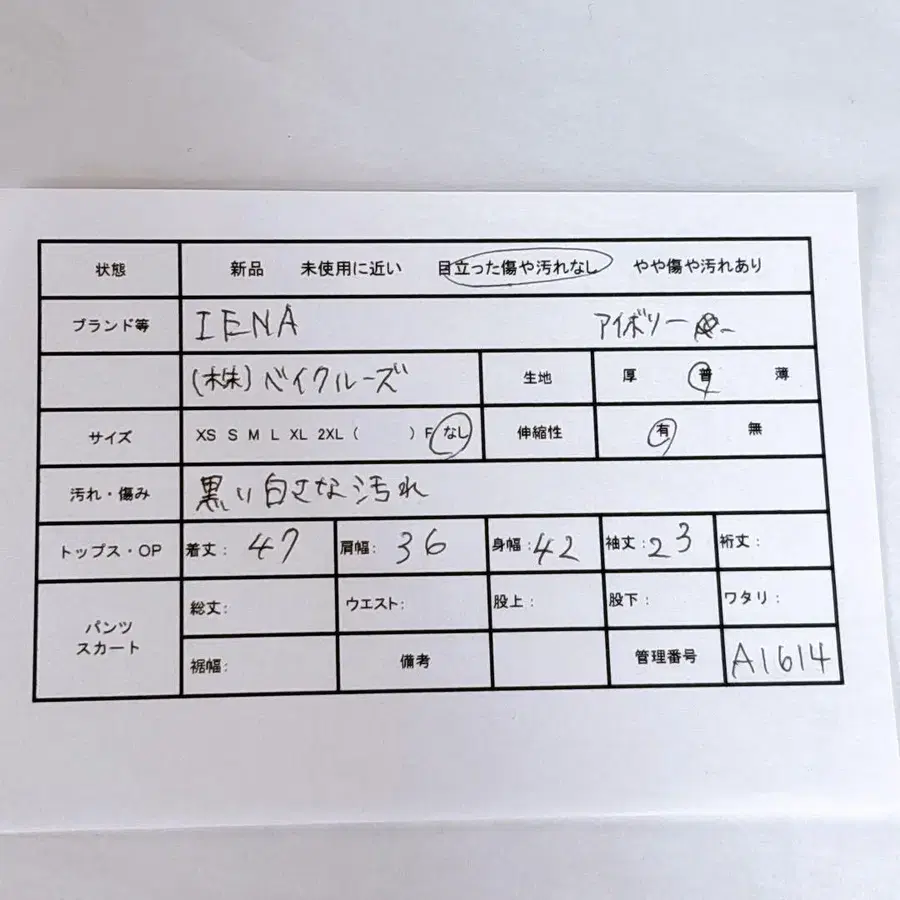 状態 新品 未使用に近い 目立った傷や汚れなし やや傷や汚れあり
ブランド等 IENA アイボリー
(株)ベイクルーズ 生地 厚 普 薄
サイズ XS S M L XL 2XL ( ) F なし 伸縮性 有 無
汚れ・傷み 黒い白さな汚れ
トップス・OP 着丈: 47 肩幅: 36 身幅: 42 袖丈: 23 裄丈:
パンツ スカート 総丈: ウエスト: 股上: 股下: ワタリ:
裾幅: 備考 管理番号 A1614